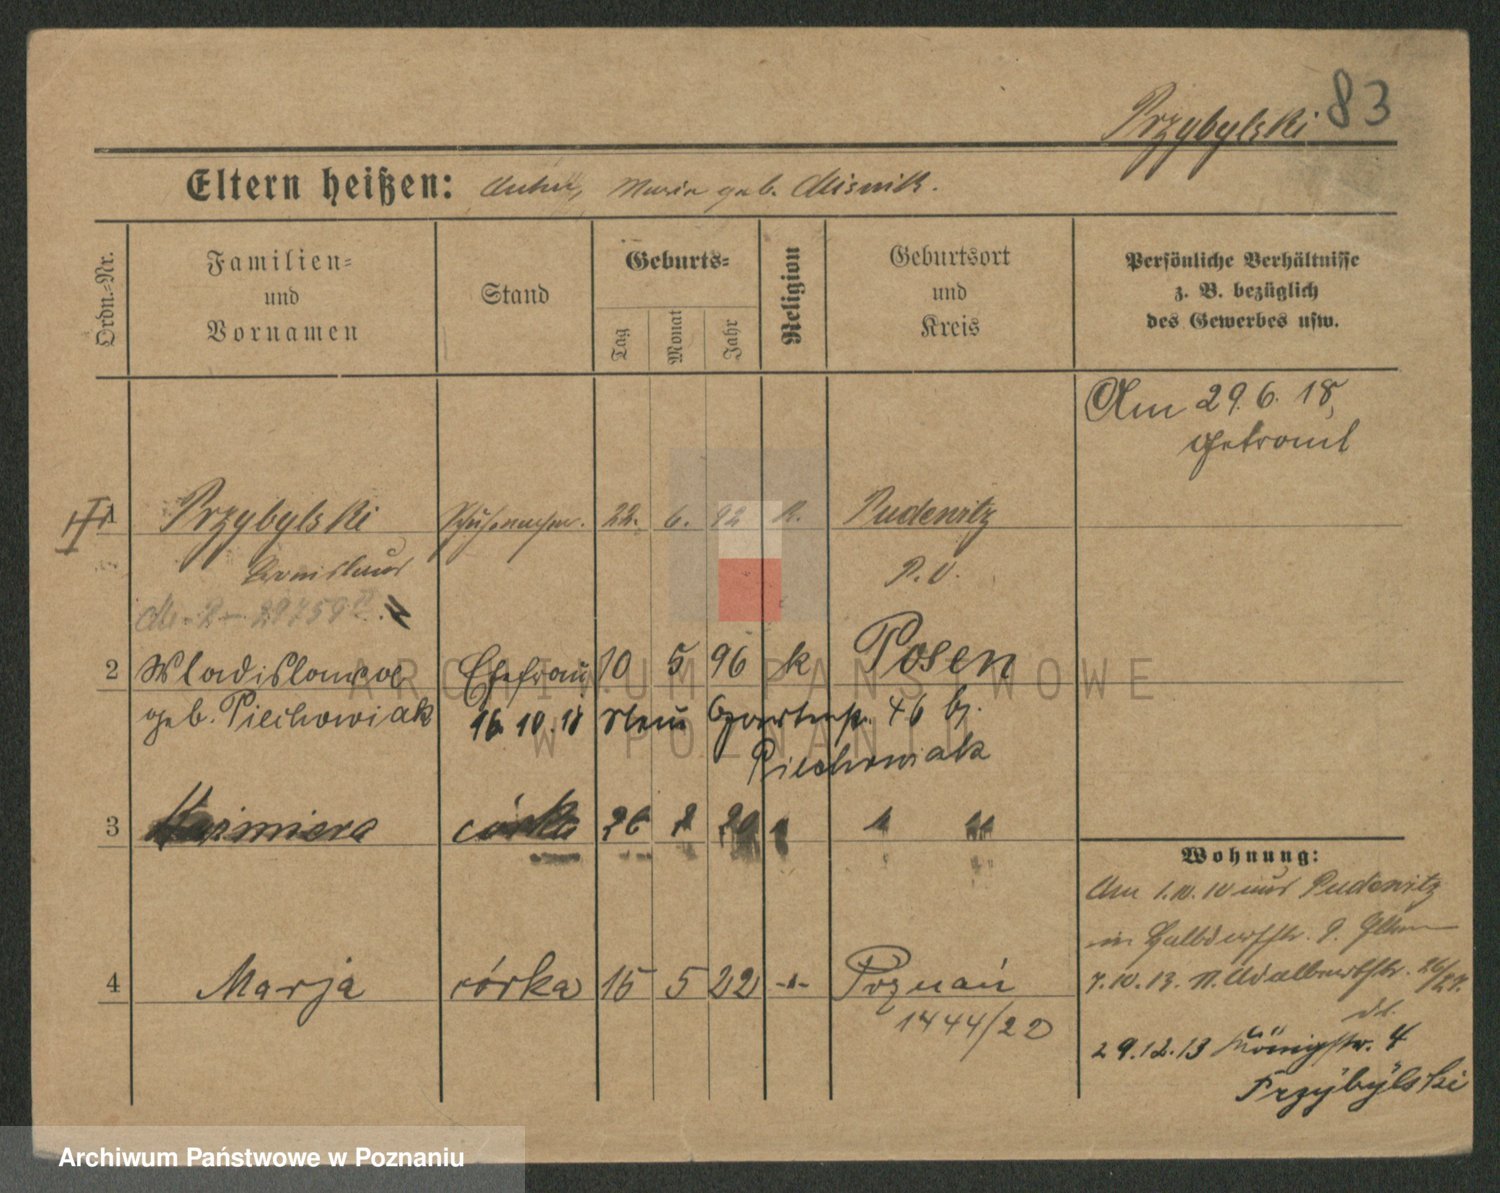 Przybylski 83
Eltern heißen: Maria geb. Misnik.
Ordn.-Nr.
Familien-
und
Vornamen
Stand
Geburts-
Tag
Monat
Jahr
Religion
Geburtsort
und
Kreis
Persönliche Verhältnisse
z. B. bezüglich
des Gewerbes usw.
Am 29. 6. 18,
getraut
1 Przybylski 22. 6. 92 k. Pudewitz
P. O.
2 Wladislawa Ehefrau 10 5 96 k Posen
geb. Piechowiak 16. 10. 18 46 bj.
Piechowiak
3 Kazimiera córka 26 2 20 " " "
4 Marja córka 15 5 22 -"- Poznań
1444/22
Wohnung:
Am 1.10.10 aus Pudewitz
in Halbdorfstr.
7.10.13. 26/27.
29.12.13 Königstr. 4
Przybylski
ARCHIWUM PAŃSTWOWE
W POZNANIU
Archiwum Państwowe w Poznaniu